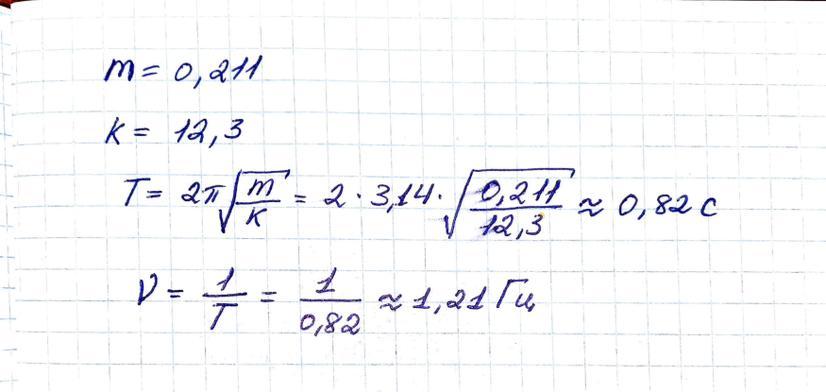 m = 0,211
k = 12,3
T = 2π√(m/k) = 2 · 3,14 · √(0,211/12,3) ≈ 0,82 с
ν = 1/T = 1/0,82 ≈ 1,21 Гц